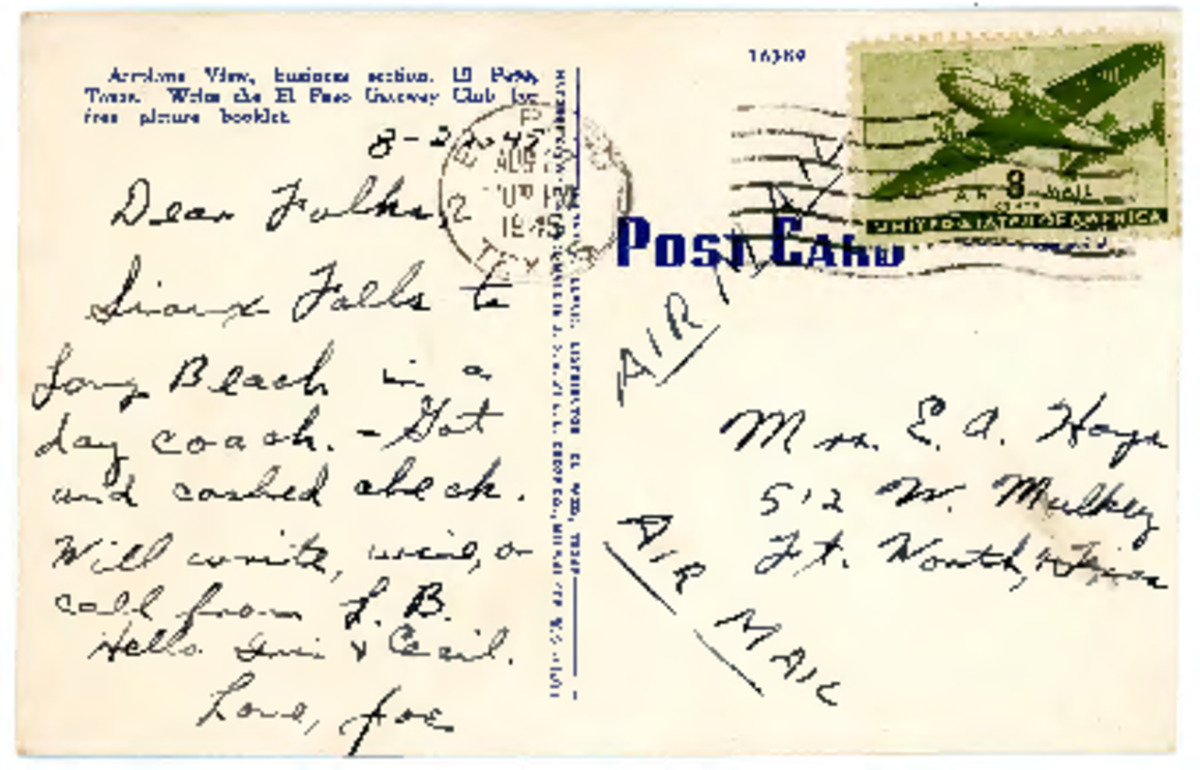 Airplane View, business section, El Paso,
Texas. Write the El Paso Gateway Club for
free picture booklet.
16389
8-2
Dear Folks,
Sioux Falls to
Long Beach in a
day coach. - Got
and cashed check.
Will write, wire, or
call from L. B.
Hello & Cecil.
Love, Joe
AUG
1945
TEXAS
POST CARD
8
AIR MAIL
UNITED STATES OF AMERICA
AIR MAIL
Mrs. E. A. Hays
512 W. Mulkey
Ft. Worth, Texas
AIR MAIL